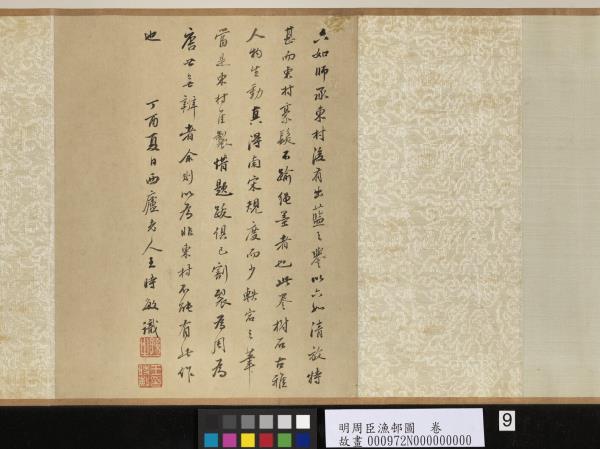 六如師承東村後有出藍之譽以六如清放特
甚而東村眾鬆不踰繩墨者也此卷樹石古雅
人物生動真得南宋規度而少軼宕之筆
當是東村佳製惜題跋俱已割裂為周為
唐世無辨者余則以為非東村不能有此作
也
丁酉夏日西廬老人王時敏識
明周臣漁邨圖 卷
故畫 000972N000000000
9